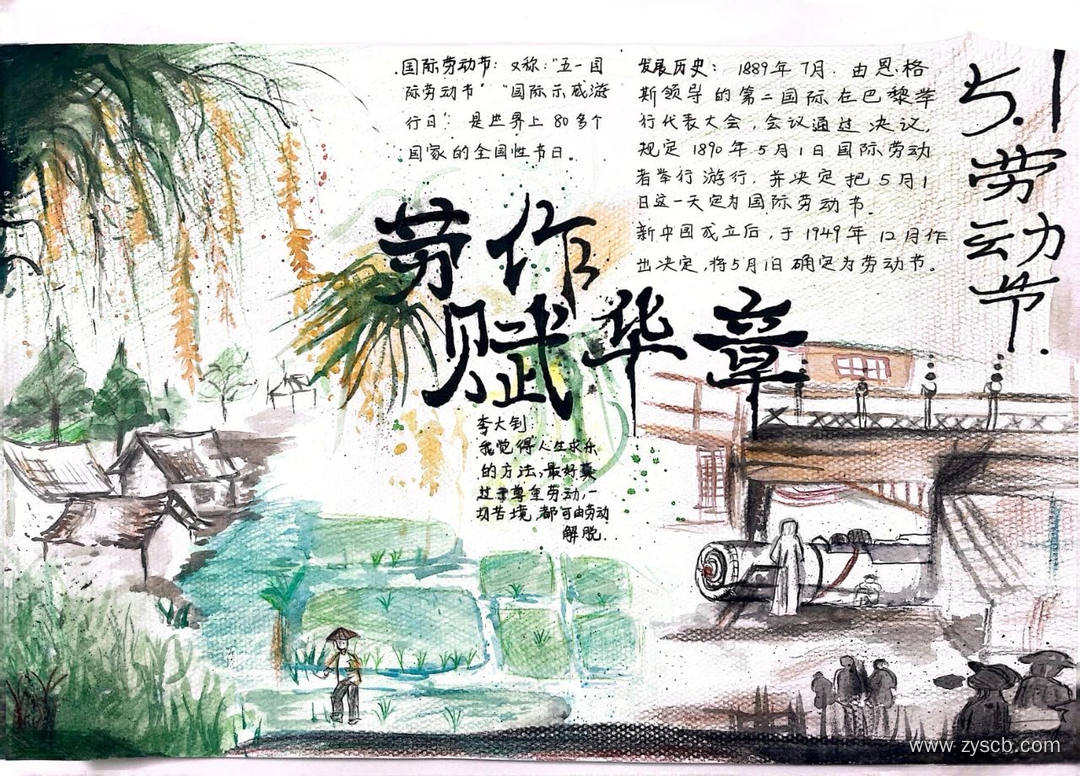 国际劳动节：又称："五一国
际劳动节""国际示威游
行日"：是世界上80多个
国家的全国性节日。
发展历史：1889年7月，由恩格
斯领导的第二国际在巴黎举
行代表大会，会议通过决议，
规定1890年5月1日国际劳动
者举行游行，并决定把5月1
日这一天定为国际劳动节。
新中国成立后，于1949年12月作
出决定，将5月1日确定为劳动节。
5.1劳动节.
劳作
赋华章
李大钊
我觉得人生求乐
的方法，最好莫
过于尊重劳动，一
切苦境，都可由劳动
解脱.
www.zyscb.com